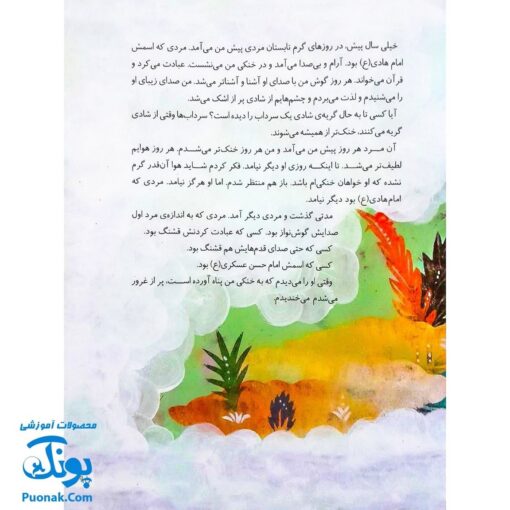 خیلی سال پیش، در روزهای گرم تابستان مردی پیش من می‌آمد. مردی که اسمش
امام هادی(ع) بود. آرام و بی‌صدا می‌آمد و در خنکی من می‌نشست. عبادت می‌کرد و
قرآن می‌خواند. هر روز گوش من با صدای او آشنا و آشناتر می‌شد. من صدای زیبای او
را می‌شنیدم و لذت می‌بردم و چشم‌هایم از شادی پر از اشک می‌شد.
آیا کسی تا به حال گریه‌ی شادی یک سرداب را دیده است؟ سرداب‌ها وقتی از شادی
گریه می‌کنند، خنک‌تر از همیشه می‌شوند.
آن مرد هر روز پیش من می‌آمد و من هر روز خنک‌تر می‌شدم. هر روز هوایم
لطیف‌تر می‌شد. تا اینکه روزی او دیگر نیامد. فکر کردم شاید هوا آن‌قدر گرم
نشده که او خواهان خنکی‌ام باشد. باز هم منتظر شدم. اما او هرگز نیامد. مردی که
امام هادی(ع) بود دیگر نیامد.
مدتی گذشت و مردی دیگر آمد. مردی که به اندازه‌ی مرد اول
صدایش گوش‌نواز بود. کسی که عبادت کردنش قشنگ بود.
کسی که حتی صدای قدم‌هایش هم قشنگ بود.
کسی که اسمش امام حسن عسکری(ع) بود.
وقتی او را می‌دیدم که به خنکی من پناه آورده است، پر از غرور
می‌شدم می‌خندیدم.
محصولات آموزشی
پونک
Puonak.Com